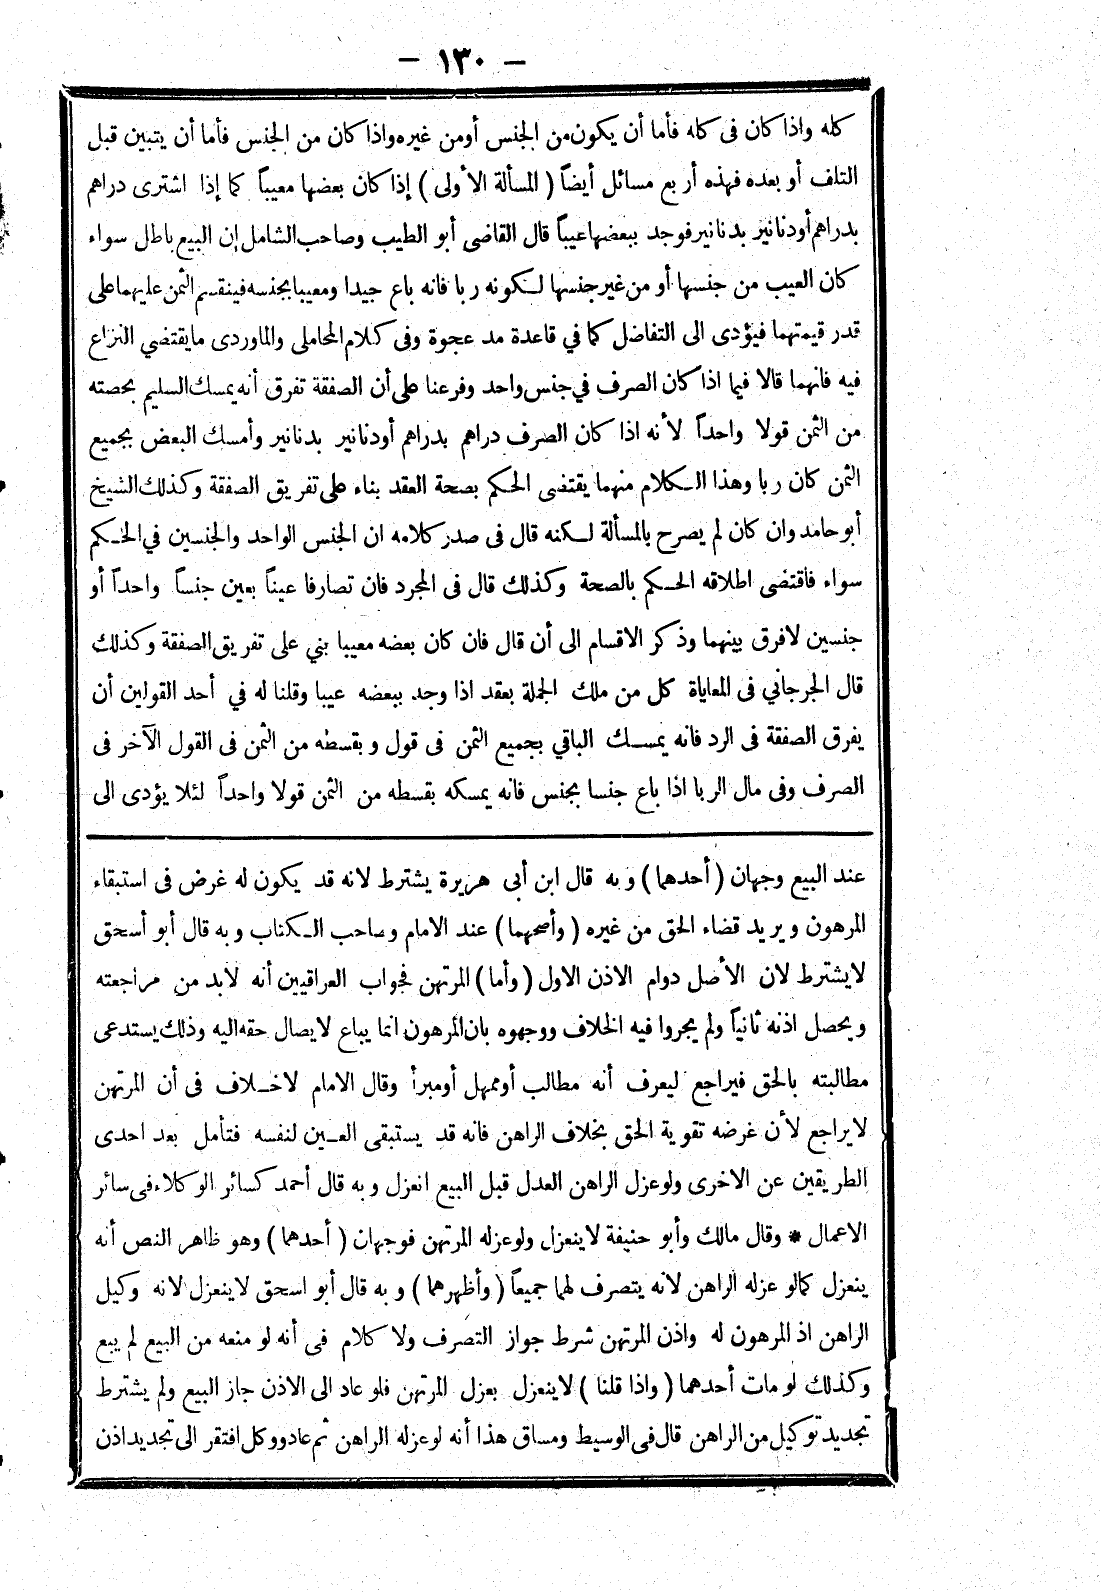 — ١٣٠ —
كله واذا كان فى كله فأما أن يكون من الجنس أو من غيره واذا كان من الجنس فأما أن يتبين قبل
التلف أو بعده فهذه أربع مسائل أيضاً (المسألة الأولى) إذا كان بعضها معيباً كما إذا اشترى دراهم
بدراهم أو دنانير بدنانير فوجد ببعضها عيباً قال القاضى أبو الطيب وصاحب الشامل إن البيع باطل سواء
كان العيب من جنسها أو من غير جنسها لكونه ربا فانه باع جيدا ومعيبا بجنسه فينقسم الثمن عليهما على
قدر قيمتهما فيؤدى الى التفاضل كما في قاعدة مد عجوة وفى كلام المحاملى والماوردى ما يقتضي النزاع
فيه فانهما قالا فيما اذا كان الصرف في جنس واحد وفرعنا على أن الصفقة تفرق أنه يمسك السليم بحصته
من الثمن قولا واحداً لأنه اذا كان الصرف دراهم بدراهم أو دنانير بدنانير وأمسك البعض بجميع
الثمن كان ربا وهذا الكلام منهما يقتضى الحكم بصحة العقد بناء على تفريق الصفقة وكذلك الشيخ
أبو حامد وان كان لم يصرح بالمسألة لكنه قال فى صدر كلامه ان الجنس الواحد والجنسين في الحكم
سواء فاقتضى اطلاقه الحكم بالصحة وكذلك قال فى المجرد فان تصارفا عيناً بعين جنساً واحداً أو
جنسين لا فرق بينهما وذكر الاقسام الى أن قال فان كان بعضه معيبا بني على تفريق الصفقة وكذلك
قال الجرجاني فى المعاياة كل من ملك الجملة بعقد اذا وجد ببعضه عيبا وقلنا له في أحد القولين أن
يفرق الصفقة فى الرد فانه يمسك الباقي بجميع الثمن فى قول وبقسطه من الثمن فى القول الآخر فى
الصرف وفى مال الربا اذا باع جنسا بجنس فانه يمسكه بقسطه من الثمن قولا واحداً لئلا يؤدى الى
عند البيع وجهان (أحدهما) وبه قال ابن أبى هريرة يشترط لانه قد يكون له غرض فى استبقاء
المرهون ويريد قضاء الحق من غيره (وأصحهما) عند الامام وصاحب الكتاب وبه قال أبو أسحق
لا يشترط لان الأصل دوام الاذن الاول (وأما) المرتهن فجواب العراقيين أنه لابد من مراجعته
ويحصل اذنه ثانياً ولم يجروا فيه الخلاف ووجهوه بان المرهون انما يباع لايصال حقه اليه وذلك يستدعى
مطالبته بالحق فيراجع ليعرف أنه مطالب أو ممهل أو مبرأ وقال الامام لا خلاف فى أن المرتهن
لا يراجع لأن غرضه تقوية الحق بخلاف الراهن فانه قد يستبقى العين لنفسه فتأمل بعد احدى
الطريقين عن الاخرى ولو عزل الراهن العدل قبل البيع انعزل وبه قال أحمد كسائر الوكلاء فى سائر
الاعمال * وقال مالك وأبو حنيفة لا ينعزل ولو عزله المرتهن فوجهان (أحدهما) وهو ظاهر النص أنه
ينعزل كما لو عزله الراهن لانه يتصرف لهما جميعاً (وأظهرهما) وبه قال أبو اسحق لا ينعزل لانه وكيل
الراهن اذ المرهون له واذن المرتهن شرط جواز التصرف ولا كلام فى أنه لو منعه من البيع لم يبع
وكذلك لو مات أحدهما (واذا قلنا) لا ينعزل بعزل المرتهن فلو عاد الى الاذن جاز البيع ولم يشترط
تجديد توكيل من الراهن قال فى الوسيط ومساق هذا أنه لو عزله الراهن ثم عاد ووكل افتقر الى تجديد اذن